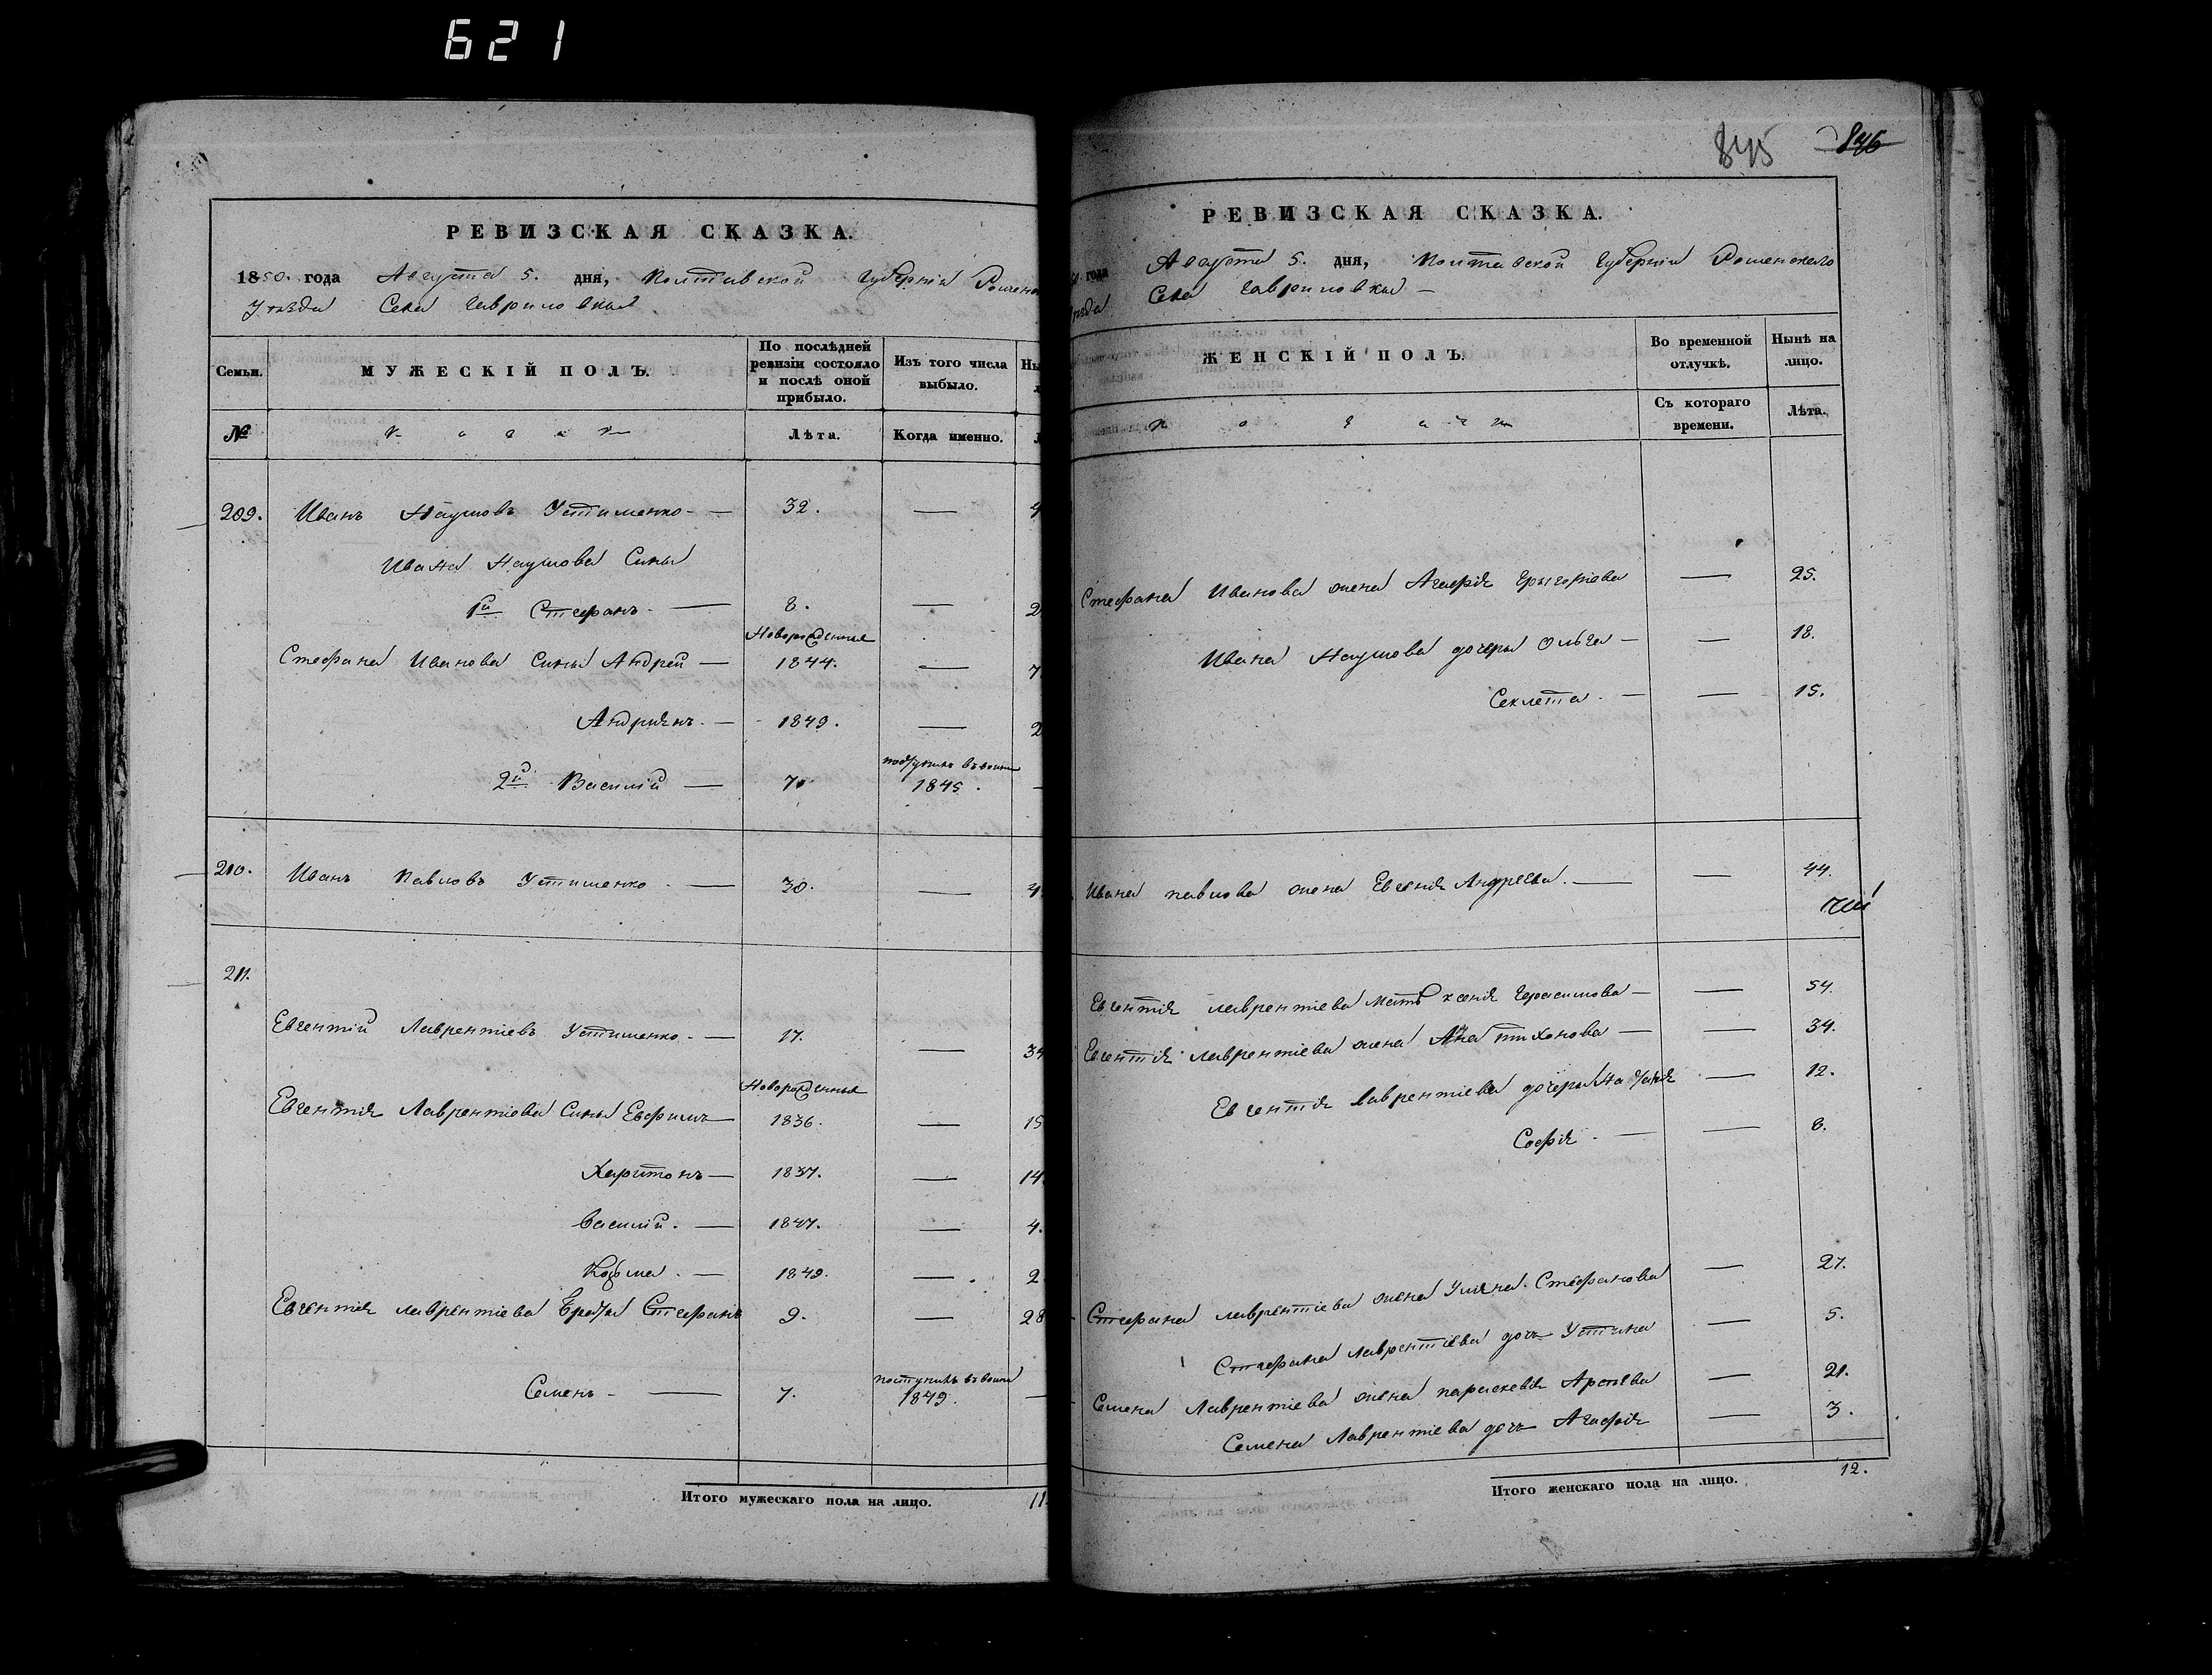 621
РЕВИЗСКАЯ СКАЗКА.
1850. года Августа 5. дня, Полтавской Губернiи Роменс
Уѣзда Села Гавриловки
Семьи.
МУЖЕСКІЙ ПОЛЪ.
По послѣдней ревизіи состояло и послѣ оной прибыло.
Изъ того числа выбыло.
Ны
№
Лѣта.
Когда именно.
209. Иванъ Наумовъ Устименко - 32. —
Ивана Наумова Сины
1й Стефанъ. — 8. — 2
Новорожденные
Стефана Иванова Сины Андрей — 1844. — 7
Андріянъ. — 1849. — 2
2й Василій — 7 поступилъ въ воины 1845. —
210. Иванъ Павловъ Устименко. — 30. — 4
211.
Евгентій Лаврентіевъ Устименко. — 17. — 34
Новорожденные
Евгентія Лаврентіева Сины Евфимъ — 1836. — 15
Харитонъ — 1837. — 14
Василій. — 1847. — 4.
Козьма. — 1849. — 2
Евгентія Лаврентіева Браты Стефанъ 9. — 28
Семенъ - — 7. поступилъ въ воины 1849. —
Итого мужескаго пола на лицо. 11
845 846
РЕВИЗСКАЯ СКАЗКА.
года Августа 5. дня, Полтавской Губерніи Роменскаго
Села Гавриловки —
ЖЕНСКІЙ ПОЛЪ.
Во временной отлучкѣ.
Нынѣ на лицо.
Съ котораго времени.
Лѣта.
Стефана Иванова жена Агафія Григоріева — 25.
Ивана Наумова дочери Ольга — — 18.
Секлета. — — 15.
Ивана Павлова жена Евгенія Андреева. — — 44.
Евгентія Лаврентіева мать Ксенія Герасимова — — 54.
Евгентія Лаврентіева жена Анна Тихонова — — 34.
Евгентія Лаврентіева дочери Наталія — 12.
Софія. — — 8.
Стефана Лаврентіева жена Уляна Стефанова — 27.
Стефана Лаврентіева дочь Устина — 5.
Семена Лаврентіева жена Параскевія — 21.
Семена Лаврентіева дочь Агафія — 3.
Итого женскаго пола на лицо. 12.